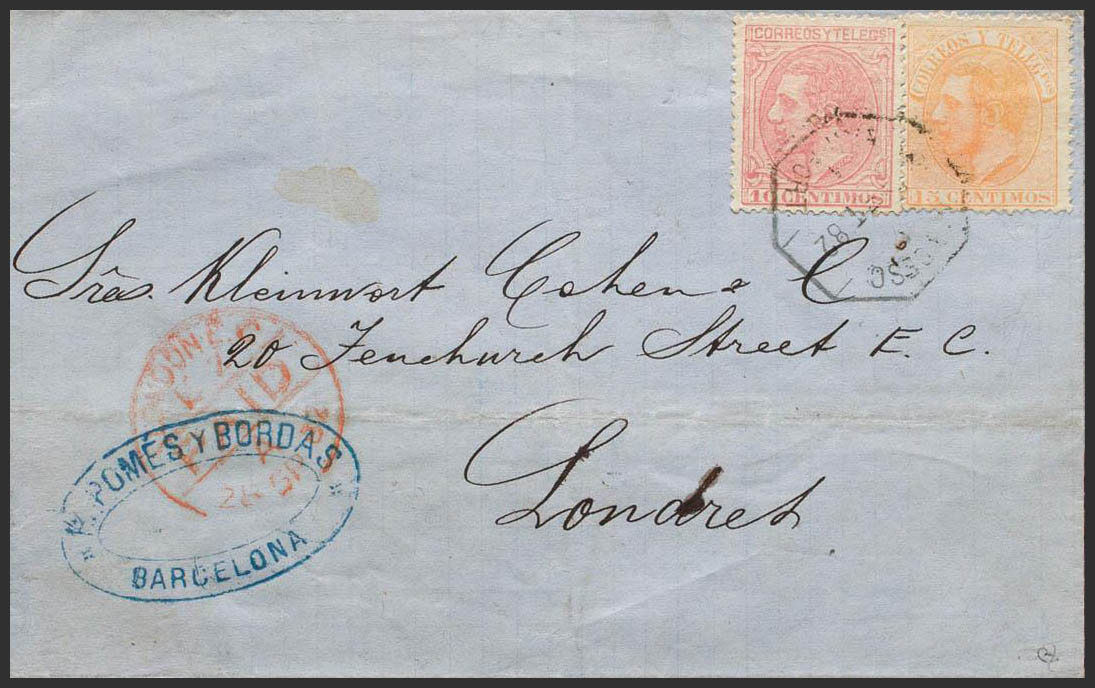 CORREOS Y TELEGS
10 CENTIMOS
CORREOS Y TELEGFOS
15 CENTIMOS
82
Srãs. Kleinwort Cohen & C
20 Fenchurch Street E. C.
Londres
POMÉS Y BORDAS
BARCELONA